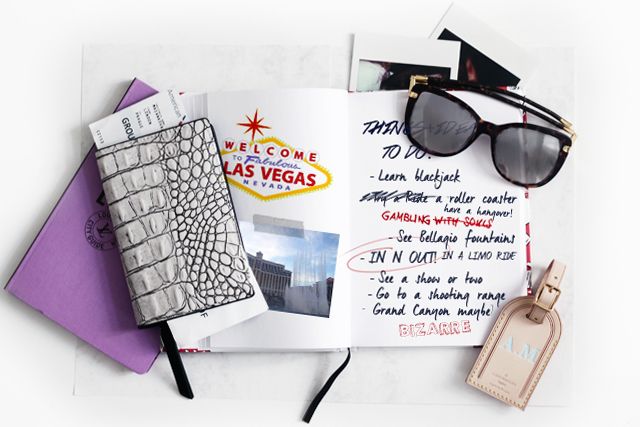 American
GROU
WELCOME
TO Fabulous
LAS VEGAS
NEVADA
GUIDE
THINGS
TO DO:
- Learn blackjack
Ride a roller coaster
have a hangover!
GAMBLING WITH SOULS
- See Bellagio fountains
- IN N OUT! IN A LIMO RIDE
- See a show or two
- Go to a shooting range
- Grand Canyon maybe?
BIZARRE
A.M